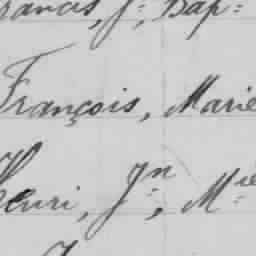 Francis, J.: Bap:
François, Marie
Henri, Jn, Mie